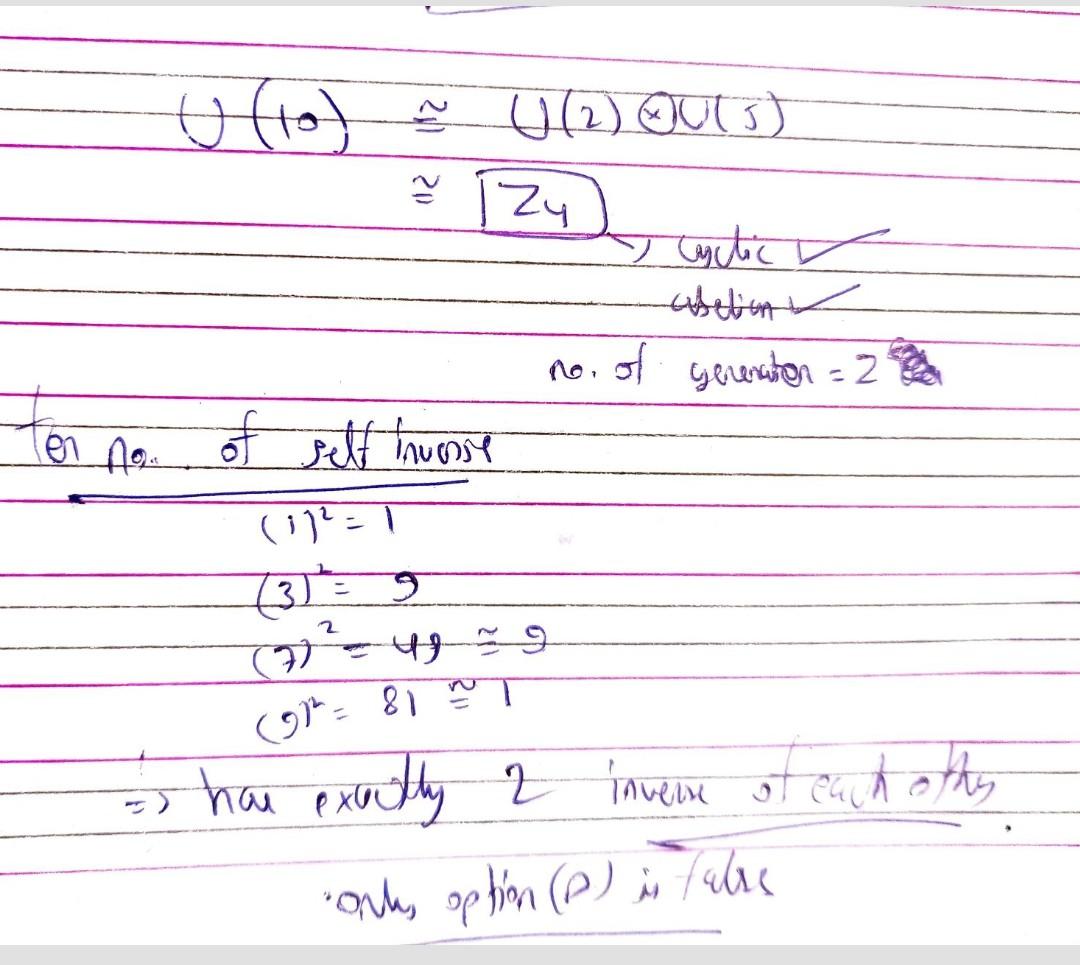 U(10) ≅ U(2) ⊗ U(5)
≅ Z4
→ cyclic ✓
abelian ✓
no. of generator = 2
For no. of self inverse
(1)² = 1
(3)² = 9
(7)² = 49 ≅ 9
(9)² = 81 ≅ 1
=> has exactly 2 inverse of each other.
only option (D) is false